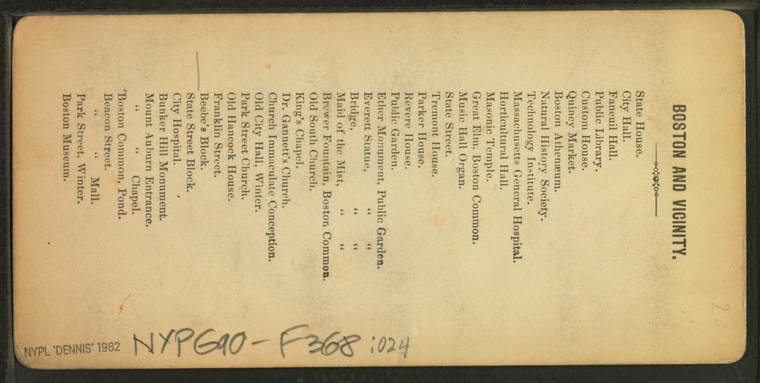 BOSTON AND VICINITY.
State House.
City Hall.
Faneuil Hall.
Public Library.
Custom House.
Quincy Market.
Boston Athenæum.
Natural History Society.
Technology Institute.
Massachusetts General Hospital.
Horticultural Hall.
Masonic Temple.
Great Elm, Boston Common.
Music Hall Organ.
State Street.
Tremont House.
Parker House.
Revere House.
Public Garden.
Ether Monument, Public Garden.
Everett Statue, " "
Bridge, " "
Maid of the Mist, " "
Brewer Fountain, Boston Common.
Old South Church.
King's Chapel.
Dr. Gannett's Church.
Church Immaculate Conception.
Old City Hall, Winter.
Park Street Church.
Old Hancock House.
Franklin Street.
Beebe's Block.
State Street Block.
City Hospital.
Bunker Hill Monument.
Mount Auburn Entrance.
" " Chapel.
Boston Common, Pond.
" " Mall.
Beacon Street.
Park Street, Winter.
Boston Museum.
NYPL 'DENNIS' 1982
NYPG90-F368:024